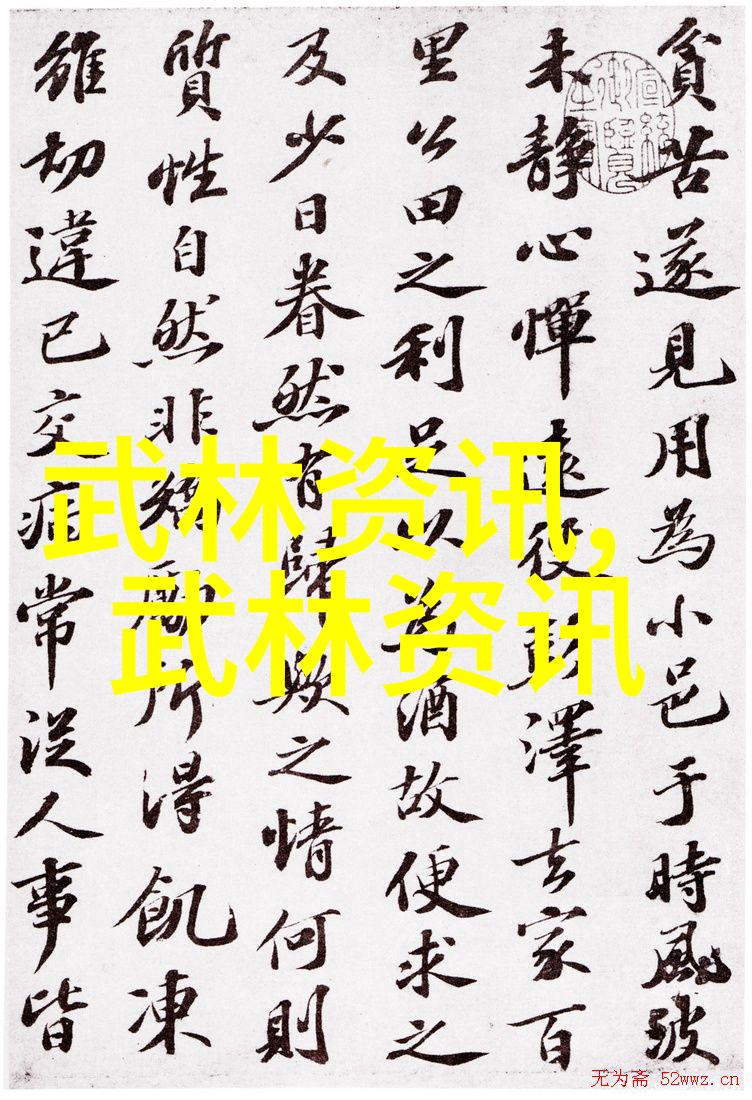 貧苦遂見用為小邑于時風波
未靜心憚遠役彭澤去家百
里公田之利足以為酒故便求之
及少日眷然有歸歟之情何則
質性自然非矯勵所得飢凍
雖切違己交病常從人事皆
武林资讯,
武林资讯
无为斋 52wwz.cn